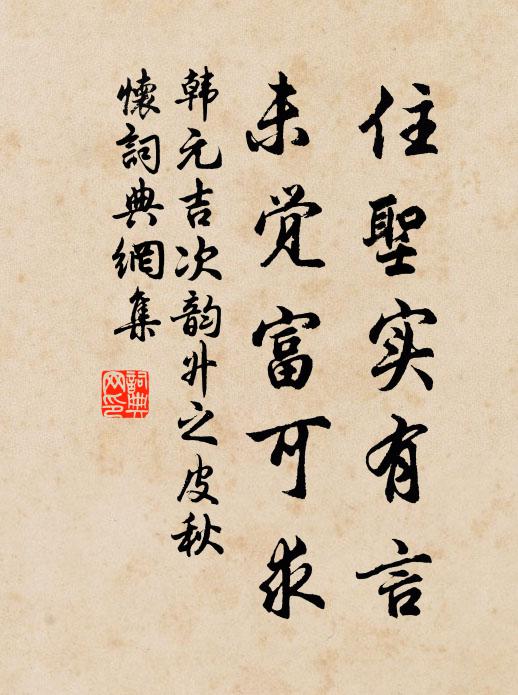 住聖实有言
未觉富可求
韩元吉次韵外之皮秋
懷詞典網集
詞典网印